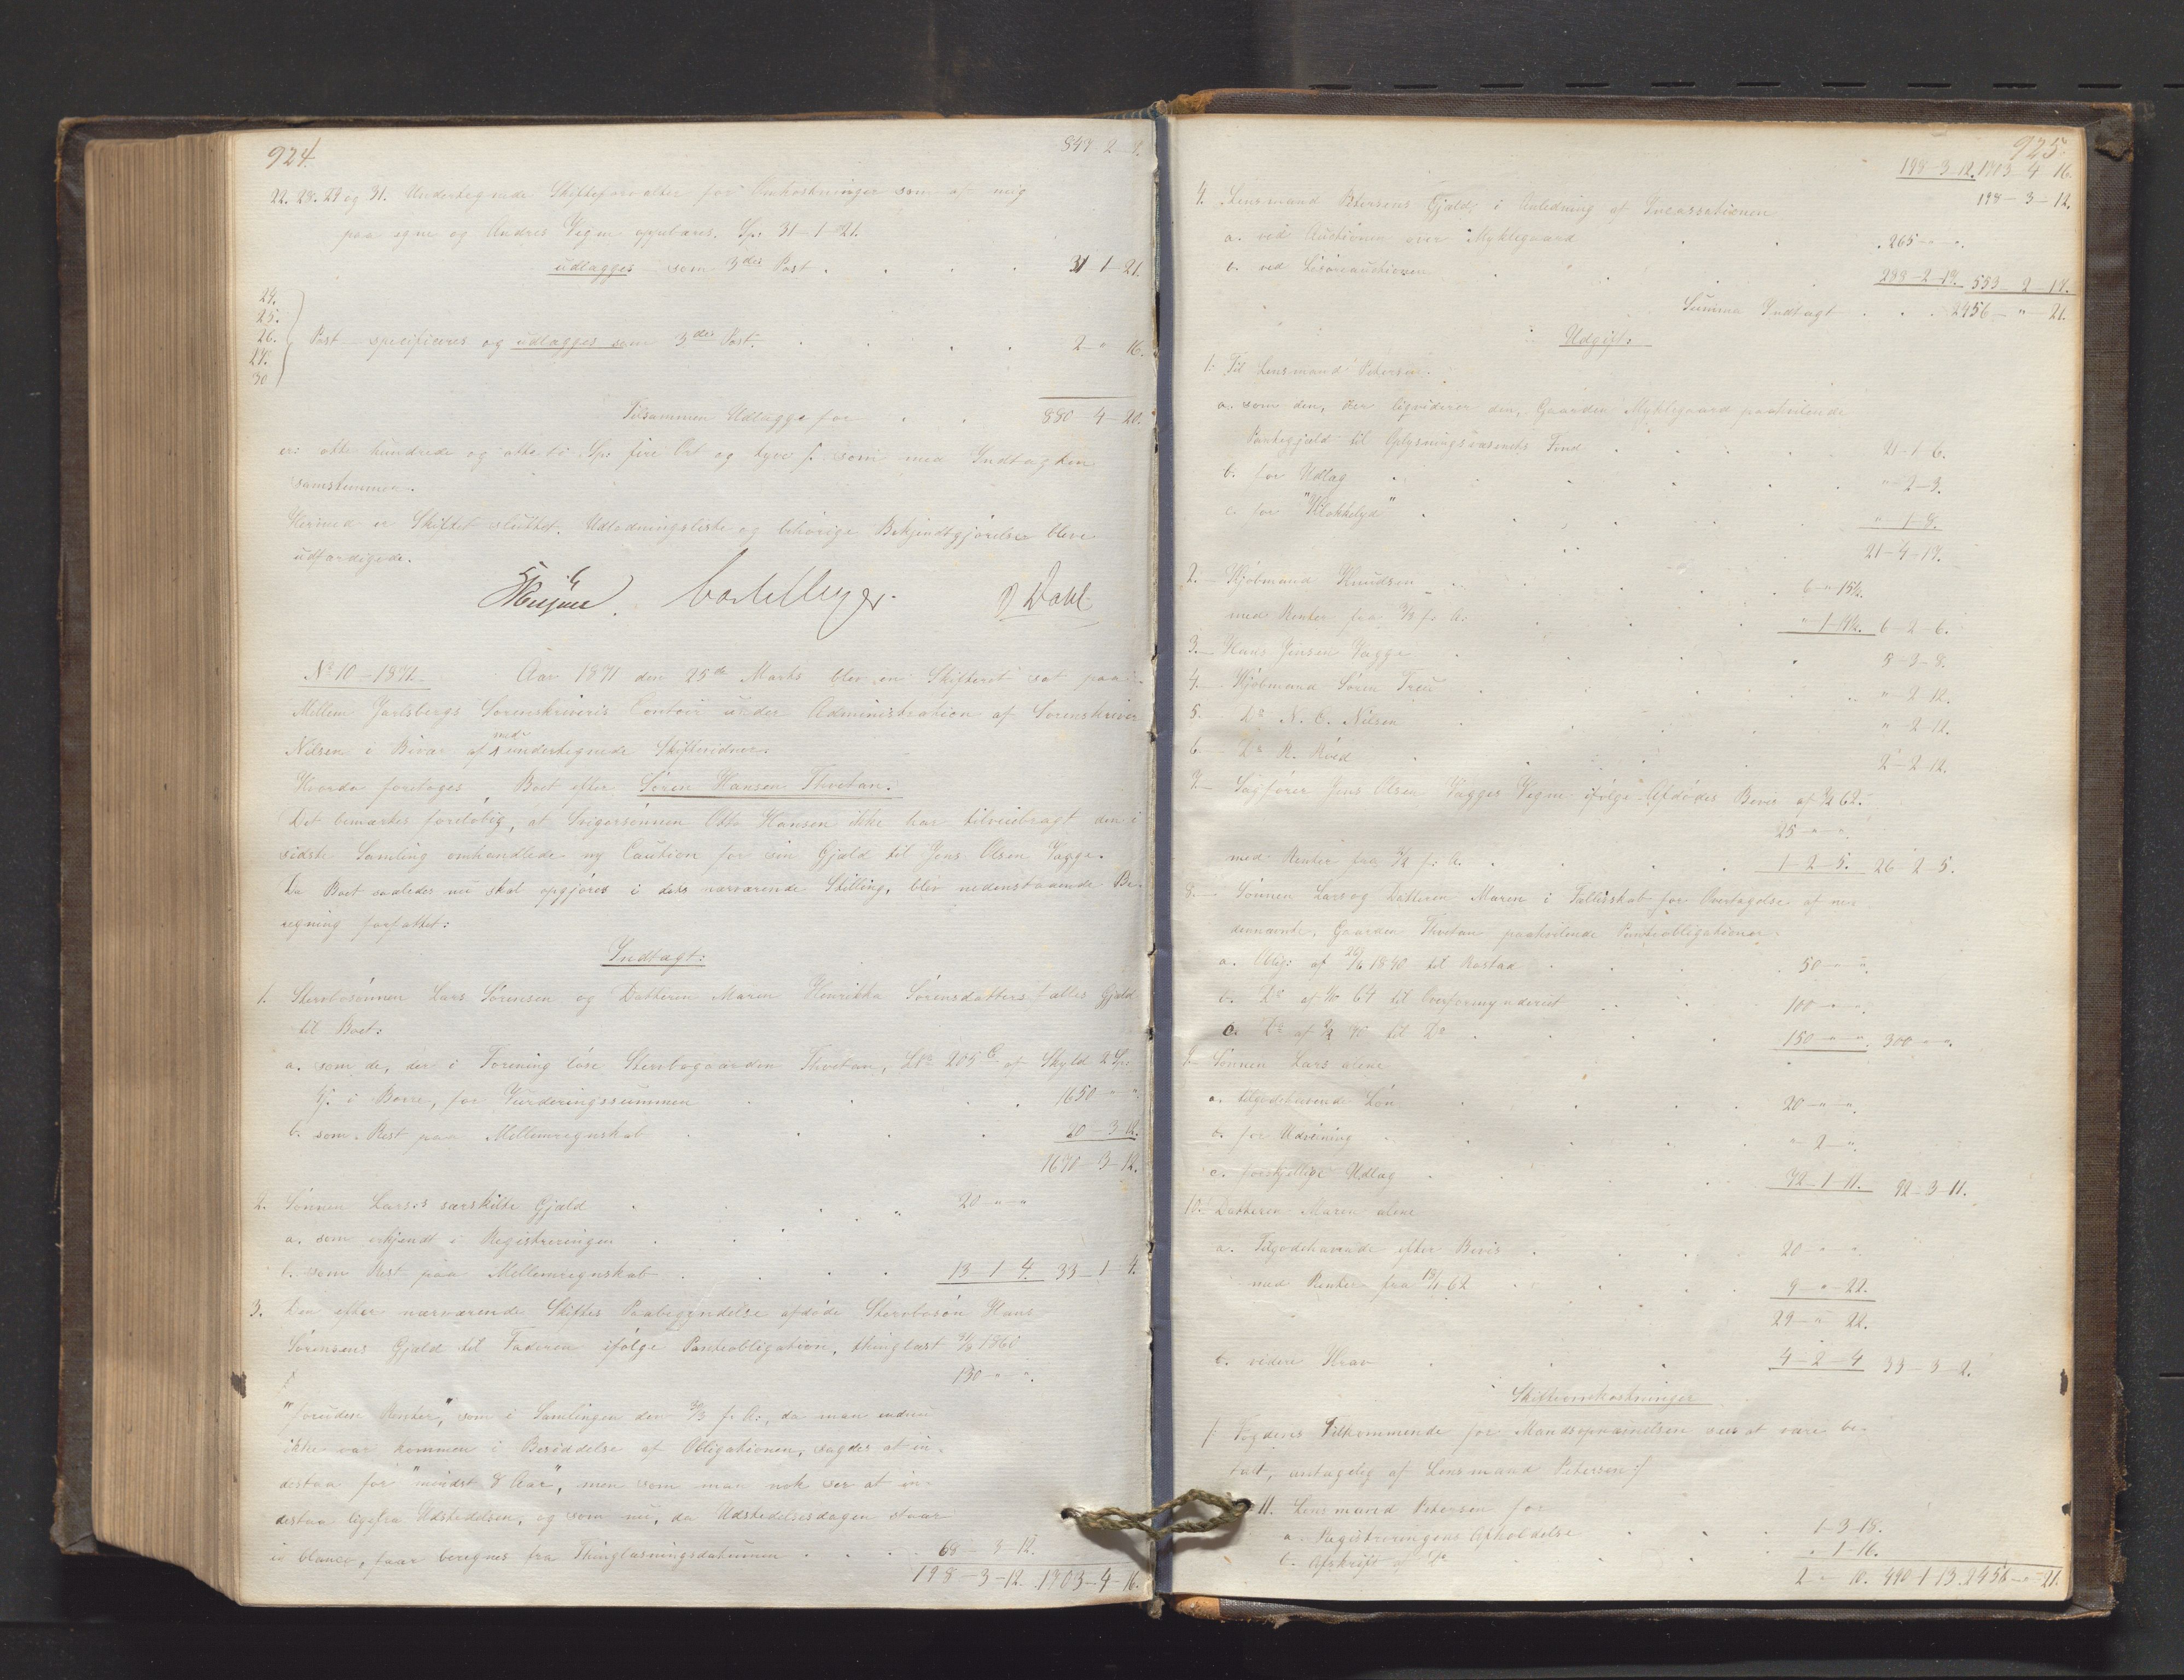 924.
849 2 4.
22. 28. 29 og 31. Undertegnede Skifteforvalter for Omkostninger som af mig
paa egne og Andres Vegne oppebæres, Sp: 31-1-21.
udlægges som 3die Post . . . . 31 1-21.
24.
25.
26. Post specificeres og udlægges som 3die Post. . . . . 2 " 16.
27.
30
Tilsammen Udlagge for . . 880-4-20.
er: otte hundrede og otteti Sp: fire Ort og tyve s. som med Indtægten
samstemmer.
Hermed er Skiftet sluttet. Udlodningsliste og behörige Bekjendtgjörelser bleve
udfærdigede.
Dahl
No 10-1871. Aar 1871 den 25de Marts blev en Skifteret sat paa
Mellem Jarlsbergs Sorenskriveris Contoir under Administration af Sorenskriver
Nilsen i Bivær af nedundertegnede Skiftevidner.
Hvorda foretoges Boet efter Sören Hansen Thvetan.
Det bemærkes forelöbig, at Svigersönnen Otto Hansen ikke har tilveiebragt den i
sidste Samling omhandlede ny Caution for sin Gjæld til Jens Olsen Vagge.
Da Boet saaledes nu skal opgjöres i dets nærværende Stilling, blev nedenstaaende Be-
regning forfattet:
Indtægt:
1. Stervbosönnen Lars Sörensen og Datteren Maren Henrikka Sörensdatters fælles Gjæld
til Boet:
a. som de, der i Forening löse Stervbogaarden Thvetan, LNo 205 af Skyld 2 Sp:
i Borre, for Vurderingssummen . . . 1650 " "
b. som Rest paa Mellemregnskab . . . 20-3-12.
1670-3-12.
2. Sönnen Lars's særskilte Gjæld . . . 20 " "
a. som erkjendt i Registreringen . .
b. som Rest paa Mellemregnskab . . . 13-1-4. 33-1-4.
3. Den efter nærværende Skiftes Paabegyndelse afdöde Stervbosön Hans
Sörensens Gjæld til Faderen ifölge Panteobligation, thinglæst 1860
130 " ".
"foruden Renter," som i Samlingen den f: A:, da man endnu
ikke var kommen i Besiddelse af Obligationen, sagdes at in-
destaa for "mindst 8 Aar", men som man nok ser at in-
destaa ligefra Udstedelsen, og som nu, da Udstedelsesdagen staar
in blanco, faar beregnes fra Thinglæsningsdatumen . . . 68-3-12.
198-3-12. 1703-4-16.
925.
198-3-12. 1703 4 16.
198-3-12.
4. Lensmand Petersens Gjæld i Anledning af Incassationen
a. ved Auctionen over Myklegaard . . . 265 " ".
b. ved Lösöreauctionen . . . 288-2-17. 553-2-17.
Summa Indtægt . . . 2456-"-21.
Udgift:
1: Til Lensmand Petersen:
a. som den, der liqviderer den, Gaarden Myklegaard paahvilende
Pantegjæld til Oplysningsvæsenets Fond . . . 21-1-6.
b. for Udlæg . . . " 2-3.
c. for "Klokkelyd" . . . " 1-8.
21-4-17.
2. Kjöbmand Knudsen . . . 6-"-15½.
med Renter fra f: A: . . . " 1-14½. 6-2-6.
3. Hans Jensen Vagge . . . 8-3-8.
4. Kjöbmand Sören Treu . . . " 2-12.
5. Do N. C. Nilsen . . . " 2-12.
6. Do R. Röed . . . 2-2-12.
7. Sagförer Jens Olsen Vagges Vegne ifölge Afdödes Bevis af 62.
25 " ".
med Renter fra f: A. . . . 1-2-5. 26 2-5.
8. Sönnen Lars og Datteren Maren i Fællesskab for Overtagelse af ne-
dennævnte, Gaarden Thvetan paahvilende Panteobligationer.
a. Oblig: af 1840 til Rostad . . . 50 " ".
b. Do af 64 til Overformynderiet . . . 100 " ".
c. Do af 70 til Do . . . 150 " ". 300 " ".
9. Sönnen Lars alene
a. tilgodehavende Lön . . . 20 " ".
b. for Udvisning . . . " 2-".
c. forskjellige Udlæg . . . 72-1-11. 92-3-11.
10. Datteren Maren alene
a. Tilgodehavende efter Bevis . . . 20 " "
med Renter fra 62 . . . 9 " 22.
29-"-22.
b. videre Krav . . . 4-2-4 33-3-2.
Skifteomkostninger
/: Fogdens Tilkommende for Mandsopnævnelsen sees at være be-
talt, antagelig af Lensmand Petersen :/
11. Lensmand Petersen for
a. Registreringens Afholdelse . . . 1-3-18.
b. Afskrift af Do . . . " 1-16.
2-"-10. 490-1-13. 2456-"-21.